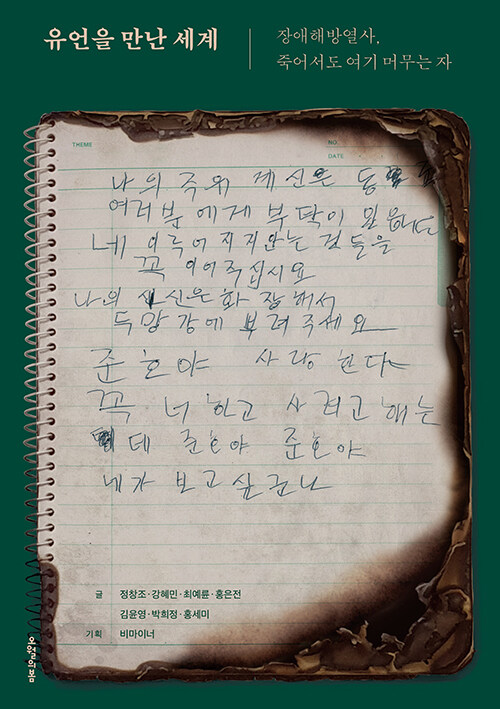 유언을 만난 세계
장애해방열사,
죽어서도 여기 머무는 자
THEME
NO.
DATE
나의 죽위 계신은 동
여러분에게 부탁이 있읍니다
네 이루어지지 안는 것들을
꼭 이어주십시요
나의 신은 화장해서
두망강에 부려주세요
준호야 사랑한다
꼭 너하고 사려고 해는
데 준호야 준호야
네가 보고싶군나
글 정창조·강혜민·최예륜·홍은전
김윤영·박희정·홍세미
기획 비마이너
오월의봄